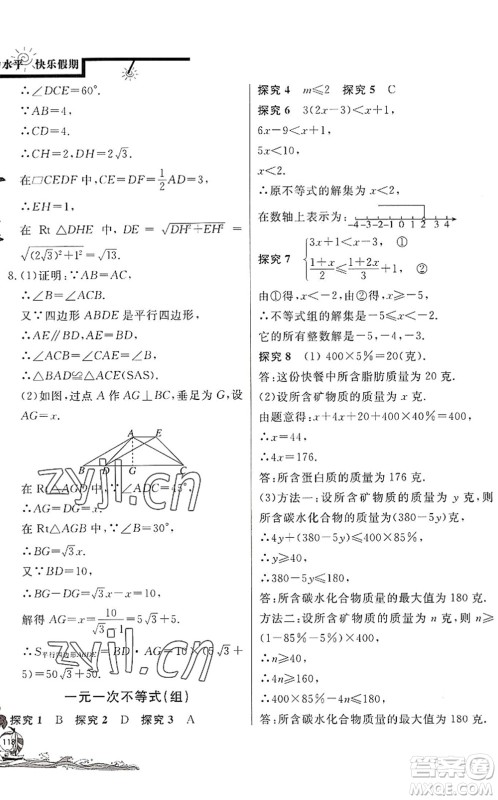 水平 快乐假期
∴∠DCE=60°.
∵AB=4,
∴CD=4.
∴CH=2,DH=2√3.
在□CEDF中,CE=DF=1/2AD=3,
∴EH=1.
在 Rt △DHE 中,DE=√(DH²+EH²)=
√((2√3)²+1²)=√13.
8.(1)证明:∵AB=AC,
∴∠B=∠ACB.
又∵四边形 ABDE 是平行四边形,
∴AE∥BD,AE=BD.
∴∠ACB=∠CAE=∠B.
∴△DBA≌△
∴△BAD≌△ACE(SAS).
(2)如图,过点 A 作 AG⊥BC,垂足为 G,设
AG=x.
A E
B D G C
在 Rt△AGD 中,∵∠ADC=45°,
∴AG=DG=x.
在 Rt△AGB 中,∵∠B=30°,
∴BG=√3x.
又∵BD=10,
∴BG-DG=10,即√3x-x=10.
解得 AG=x=10/(√3-1)=5√3+5.
∴S平行四边形ABDE=BD·AG=10×(5√3+
5)=50√3+50.
一元一次不等式(组)
探究 1 B 探究 2 D 探究 3 A
118
探究 4 m≤2 探究 5 C
探究 6 3(2x-3)<x+1,
6x-9<x+1,
5x<10,
x<2.
∴原不等式的解集为x<2.
在数轴上表示为:
-4 -3 -2 -1 0 1 2 3 4
探究 7 3x+1<x-3, ①
(1+x)/2≤(1+2x)/3+1 ②
由①得:x<-2,由②得:x≥-5.
∴不等式组的解集是-5≤x<-2.
它的所有整数解为-5,-4,-3.
探究 8 (1)400×5%=20(克).
答:这份快餐中所含脂肪质量为 20 克.
(2)设所含矿物质的质量为 x 克.
由题意得:x+4x+20+400×40%=400,
∴x=44,
∴4x=176.
答:所含蛋白质的质量为 176 克.
(3)方法一:设所含矿物质的质量为 y 克,则
所含碳水化合物质量为(380-5y)克.
∴4y+(380-5y)≤400×85%.
∴y≥40,
∴380-5y≤180.
答:所含碳水化合物质量的最大值为 180 克.
方法二:设所含矿物质的质量为 n 克,则 n≥
(1-85%-5%)×400
∴n≥40,
∴4n≥160,
∴400×85%-4n≤180,
答:所含碳水化合物质量的最大值为 180 克.